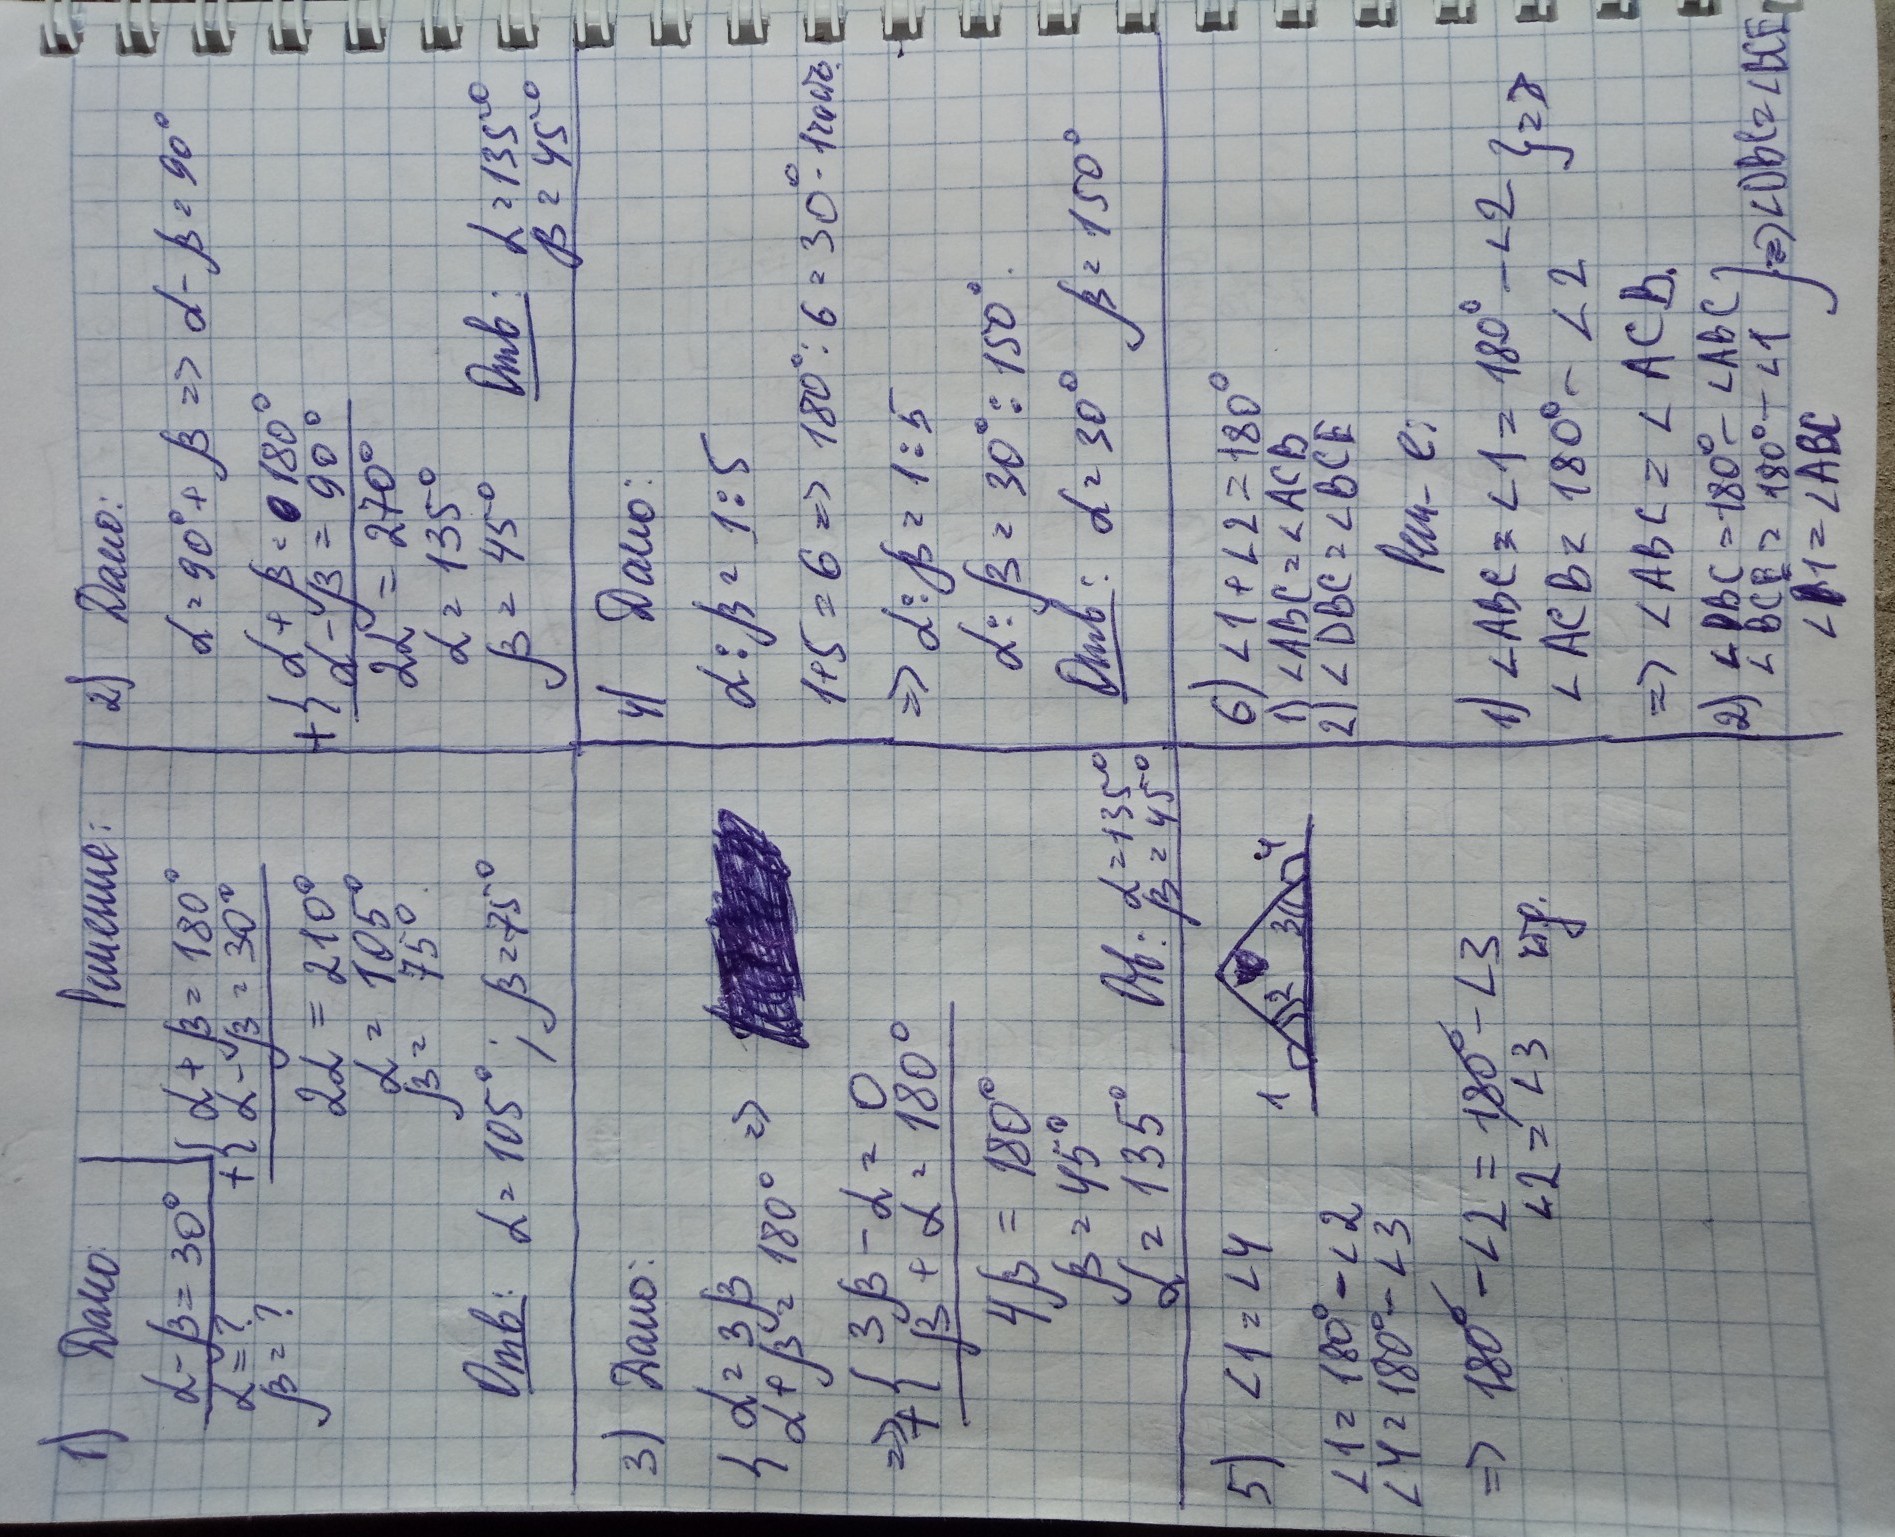 1) Дано: Решение:
α-β=30°
α=?
β=?
+{ α+β=180°
α-β=30°
2α=210°
α=105°
β=75°
Отв: α=105°; β=75°
2) Дано:
α=90°+β => α-β=90°
+{ α+β=180°
α-β=90°
2α=270°
α=135°
β=45°
Отв: α=135°
β=45°
3) Дано:
{ α=3β
α+β=180° =>
=> +{ 3β-α=0
β+α=180°
4β=180°
β=45°
α=135°
Отв: α=135°
β=45°
4) Дано:
α:β=1:5
1+5=6 => 180°:6=30°-1часть.
=> α:β=1:5
α:β=30°:150°.
Отв: α=30° β=150°
5) ∠1=∠4
1 2 3 4
∠1=180°-∠2
∠4=180°-∠3
=> 180°-∠2=180°-∠3
∠2=∠3
6) ∠1+∠2=180°
1) ∠ABC=∠ACB
2) ∠DBC=∠BCE
Реш-е:
1) ∠ABC=∠1=180°-∠2 } =>
∠ACB=180°-∠2
=> ∠ABC=∠ACB.
2) ∠DBC=180°-∠ABC }
∠BCE=180°-∠1 => ∠DBC=∠BCE
∠1=∠ABC